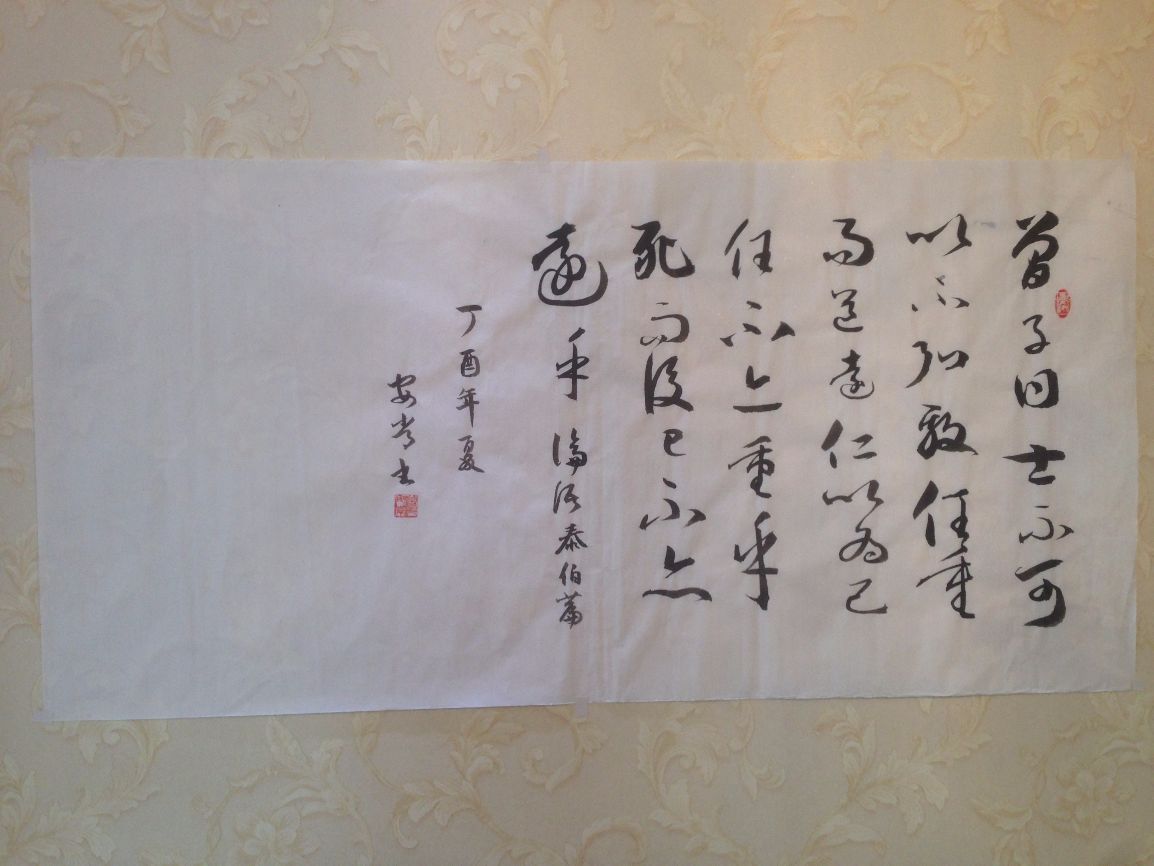 曾子曰士不可
以不弘毅任重
而道遠仁以為己
任不亦重乎
死而後已不亦
遠乎 論語泰伯篇
丁酉年夏
安 书